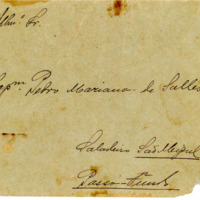 Illmº Sr.
Capm. Pedro Mariano de Salles
Saladeiro São Miguel
Passo Fundo